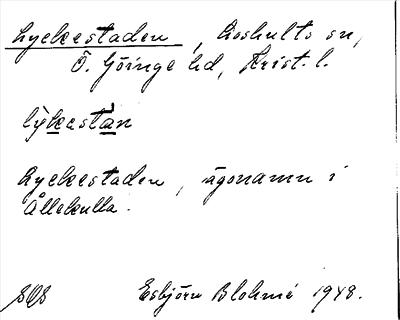 Lyckestaden, Loshults sn,
Ö. Göinge hd, Krist. l.
lỳkestán
Lyckestaden, ägonamn i
Ållekulla.
Esbjörn Blohmé 1948.